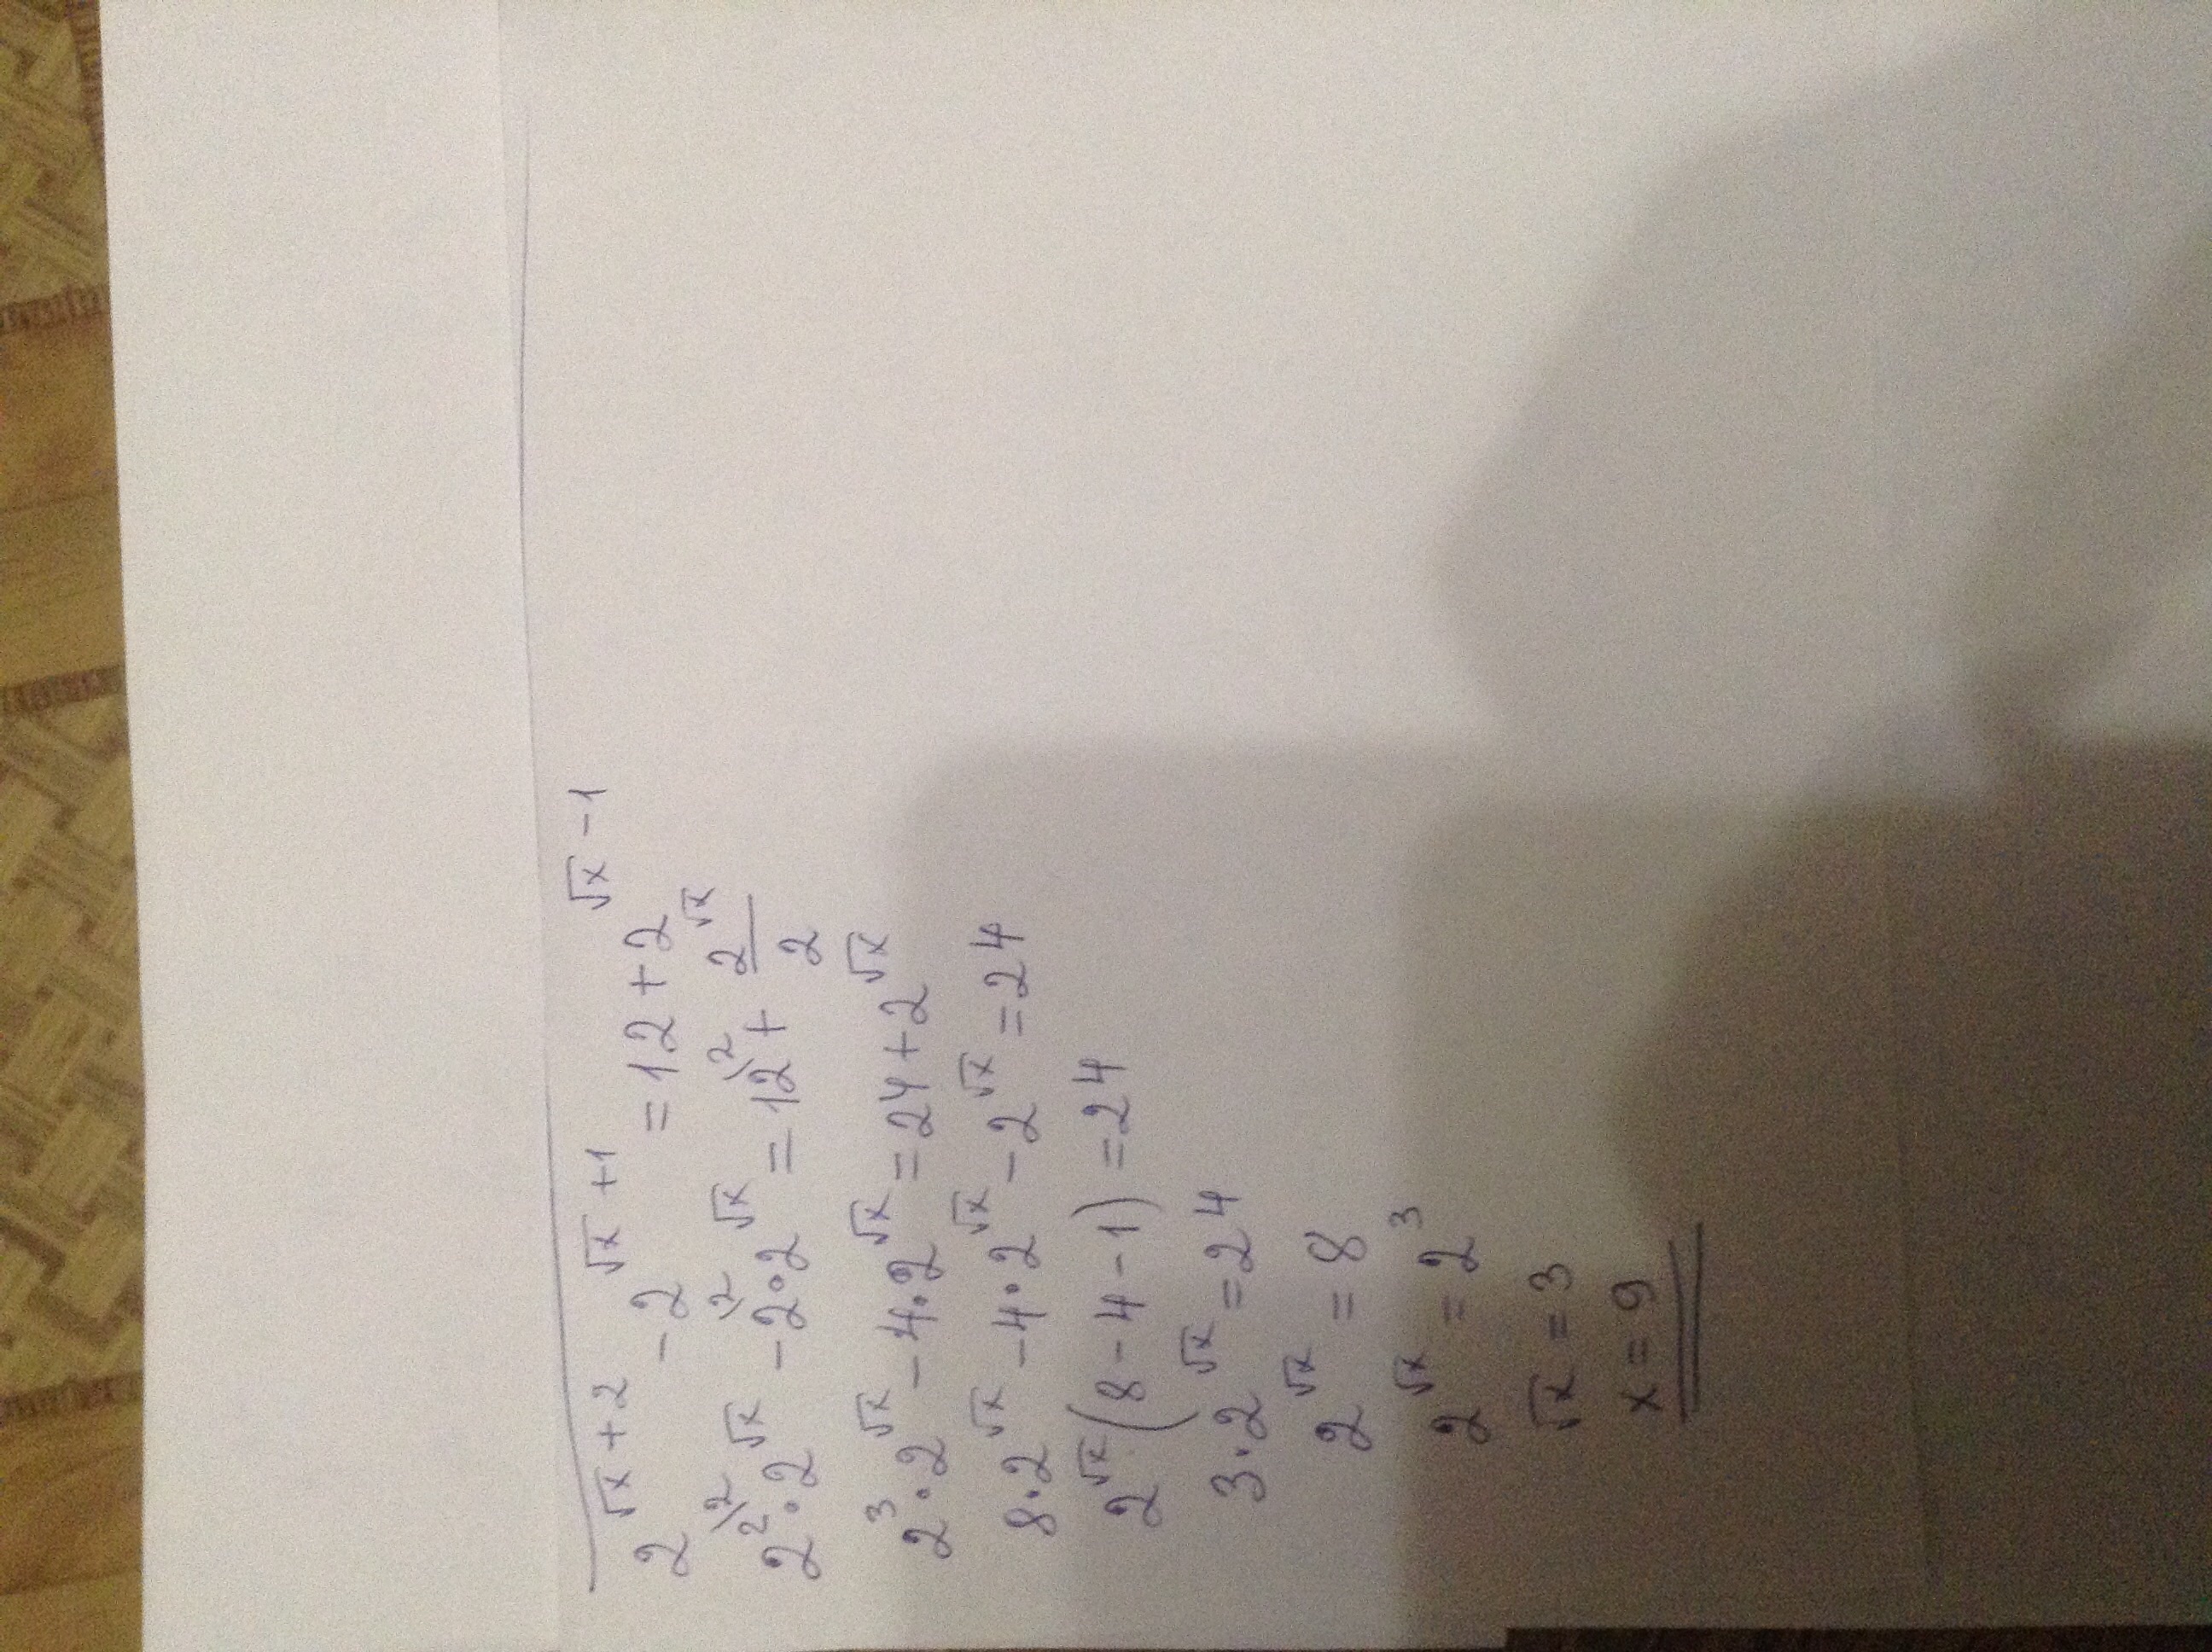 2^{√x+2} - 2^{√x+1} = 12 + 2^{√x-1}
2^2\2 · 2^{√x} - 2\2 · 2^{√x} = 12\2 + 2^{√x}/2
2^3 · 2^{√x} - 4 · 2^{√x} = 24 + 2^{√x}
8 · 2^{√x} - 4 · 2^{√x} - 2^{√x} = 24
2^{√x} (8 - 4 - 1) = 24
3 · 2^{√x} = 24
2^{√x} = 8
2^{√x} = 2^3
√x = 3
x = 9